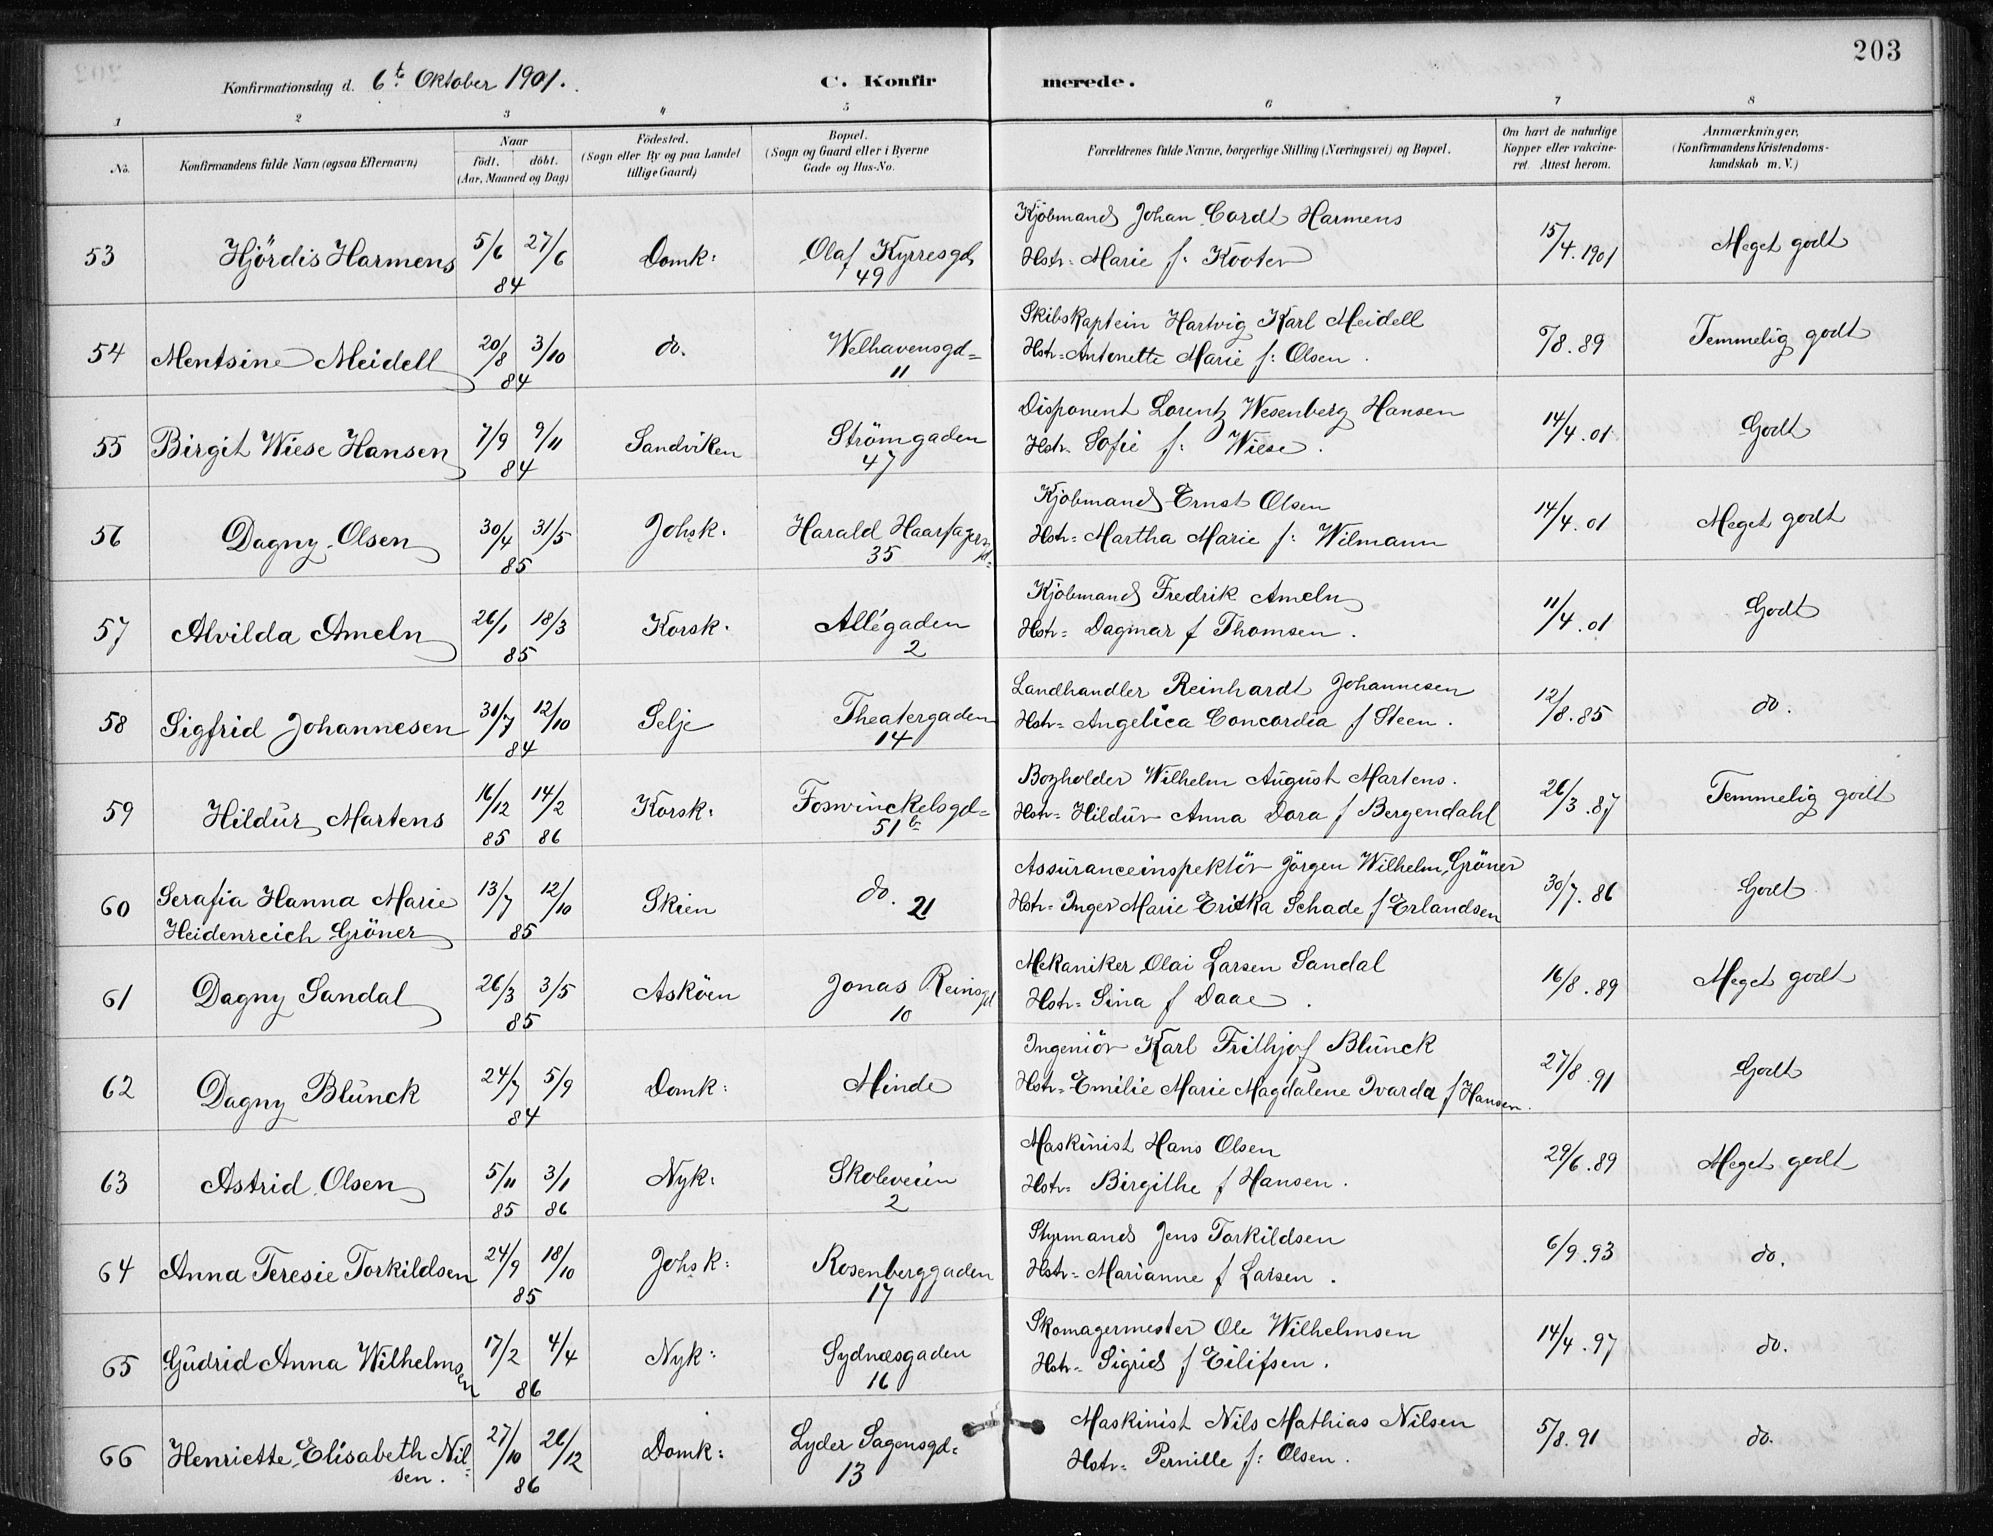 203
Konfirmationsdag d. 6t Oktober 1901. C. Konfir merede.
1 2 3 4 5 6 7 8
No. Konfirmandens fulde Navn (ogsaa Efternavn) Naar födt. döbt. (Aar, Maaned og Dag) Födested. (Sogn eller By og paa Landet tillige Gaard) Bopæl. (Sogn og Gaard eller i Byerne Gade og Hus-No. Forældrenes fulde Navne, borgerlige Stilling (Næringsvei) og Bopæl. Om havt de naturlige Kopper eller vakcineret. Attest herom. Anmærkninger, (Konfirmandens Kristendomskundskab m. V.)
53 Hjördis Harmens 5/6 27/6 84 Domk: Olaf Kyrresgd 49 Kjöbmand Johan Cordt Harmens 15/4.1901 Meget godt
Hstr: Marie f: Kooter
54 Mentsine Meidell 20/8 3/10 84 do. Welhavensgd= 11 Skibskaptein Hartvig Karl Meidell /8.89 Temmelig godt
Hstr= Antonette Marie f: Olsen.
55 Birgit Wiese Hansen 7/9 9/11 84 Sandviken Strömgaden 47 Disponent Lorentz Wesenberg Hansen 14/4.01 Godt
Hstr. Sofie f: Wiese.
56 Dagny Olsen 30/4 31/5 85 Johsk: Harald Haarfagersgd: 35 Kjöbmand Ernst Olsen 14/4.01 Meget godt
Hstr= Martha Marie f: Wilmann
57 Alvilda Ameln 26/1 18/3 85 Korsk. Allégaden 2 Kjöbmand Fredrik Ameln 11/4.01 Godt
Hstr= Dagmar f Thomsen.
58 Sigfrid Johannesen 31/7 12/10 84 Selje Theatergaden 14 Landhandler Reinhardt Johannesen 12/8.85 do.
Hstr= Angelica Concordia f Steen.
59 Hildur Martens 16/12 85 14/2 86 Korsk: Fosswinckelsgd= 51b Bogholder Wilhelm August Martens. 26/3.87 Temmelig godt
Hstr= Hildur Anna Dora f Bergendahl
60 Serafia Hanna Marie Heidenreich Gröner 13/7 12/10 85 Skien do. 21 Assuranceinspektör Jörgen Wilhelm Gröner 30/7.86 Godt
Hstr= Inger Marie Erika Schade f Erlandsen
61 Dagny Sandal 26/3 3/5 85 Asköen Jonas Reinsgd 10 Mekaniker Olai Larsen Sandal 16/8.89 Meget godt
Hstr= Sina f Daae.
62 Dagny Blunck 24/7 5/9 84 Domk: Minde Ingeniör Karl Frithjof Blunck 27/8.91 Godt
Hstr= Emilie Marie Magdalene Ivarda f Hansen.
63 Astrid Olsen 5/11 85 3/1 86 Nyk: Skoleveien 2 Maskinist Hans Olsen 29/6.89 Meget godt
Hstr= Birgithe f Hansen.
64 Anna Teresie Torkildsen 24/9 18/10 85 Johsk: Rosenberggaden 17 Styrmand Jens Torkildsen 6/9.93 do.
Hstr= Marianne f Larsen.
65 Gudrid Anna Wilhelmsen 17/2 4/4 86 Nyk: Sydnæsgaden 16 Skomagermester Ole Wilhelmsen 14/4.97 do.
Hstr= Sigrid f Eilifsen.
66 Henriette Elisabeth Nilsen. 27/10 26/12 86 Domk: Lyder Sagensgd: 13 Maskinist Nils Mathias Nilsen 5/8.91 do.
Hstr= Pernille f: Olsen.